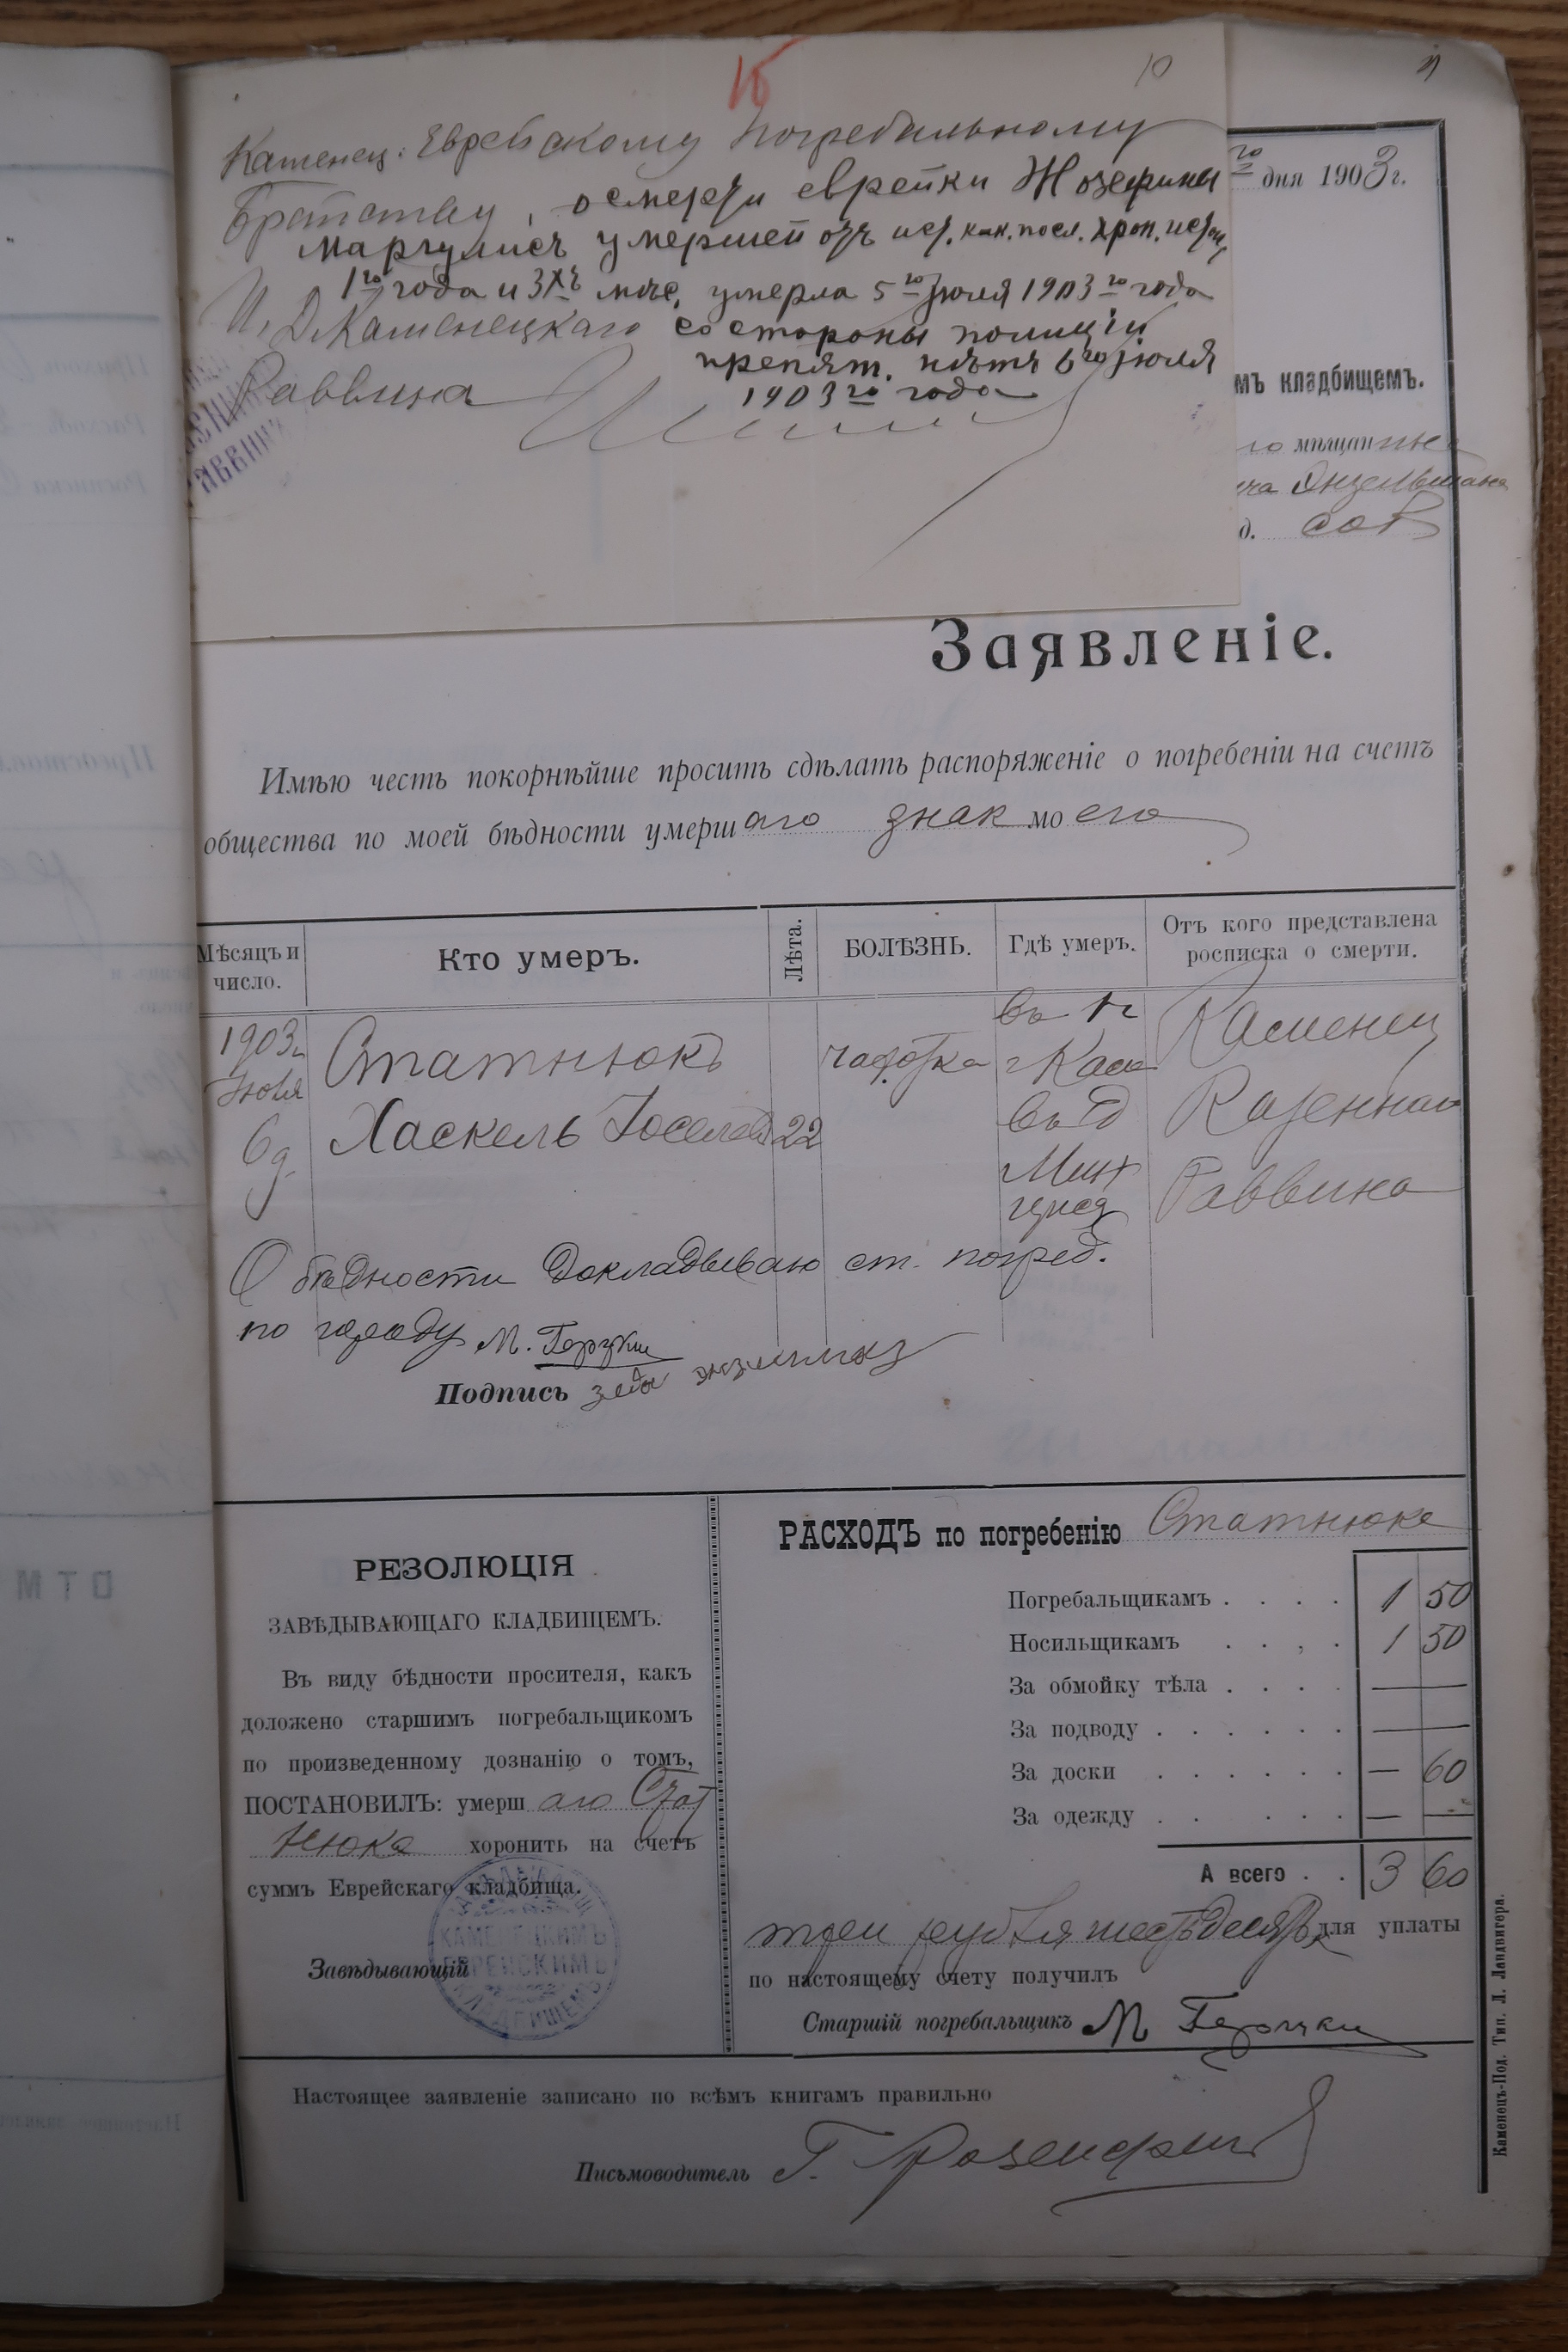 15
10
Каменец. Еврейскому Погребальному
Братству, о смерти еврейки Жозефины
Маргулисъ умершей отъ ист. как. посл. хрон.
1го года и 3хъ мѣс. умерла 5го Іюля 1903го года
И. Д. Каменецкаго со стороны полиціи
препят. нѣтъ 6го Іюля
Раввина 1903го года
го дня 1903 г.
мъ кладбищемъ.
го мѣщанина
д.
Заявленіе.
Имѣю честь покорнѣйше просить сдѣлать распоряженіе о погребеніи на счетъ
общества по моей бѣдности умершаго знакомоего
Мѣсяцъ и число. Кто умеръ. Лѣта. БОЛѢЗНЬ. Гдѣ умеръ. Отъ кого представлена росписка о смерти.
1903 г. Статнюкъ чахотка въ г. Каменец
Іюля Хаскель Іоселев 22 въ Казеннаго
6 д. Раввина
О бѣдности докладываю ст. погреб.
по городу М.
Подпись
РЕЗОЛЮЦІЯ
ЗАВѢДЫВАЮЩАГО КЛАДБИЩЕМЪ.
Въ виду бѣдности просителя, какъ
доложено старшимъ погребальщикомъ
по произведенному дознанію о томъ,
ПОСТАНОВИЛЪ: умершаго Стат
нюка хоронить на счетъ
суммъ Еврейскаго кладбища.
Завѣдывающій
КАМЕНЕЦКИМЪ
ЕВРЕЙСКИМЪ
КЛАДБИЩЕМЪ
РАСХОДЪ по погребенію Статнюка
Погребальщикамъ . . . . 1 50
Носильщикамъ . . . . 1 50
За обмойку тѣла . . . . —
За подводу . . . . . . —
За доски . . . . . . — 60
За одежду . . . . . — —
А всего . . 3 60
три рубля шестьдесятъ к для уплаты
по настоящему счету получилъ
Старшій погребальщикъ М
Настоящее заявленіе записано по всѣмъ книгамъ правильно
Письмоводитель Г.
Каменецъ-Под. Тип. Л. Ландвигера.